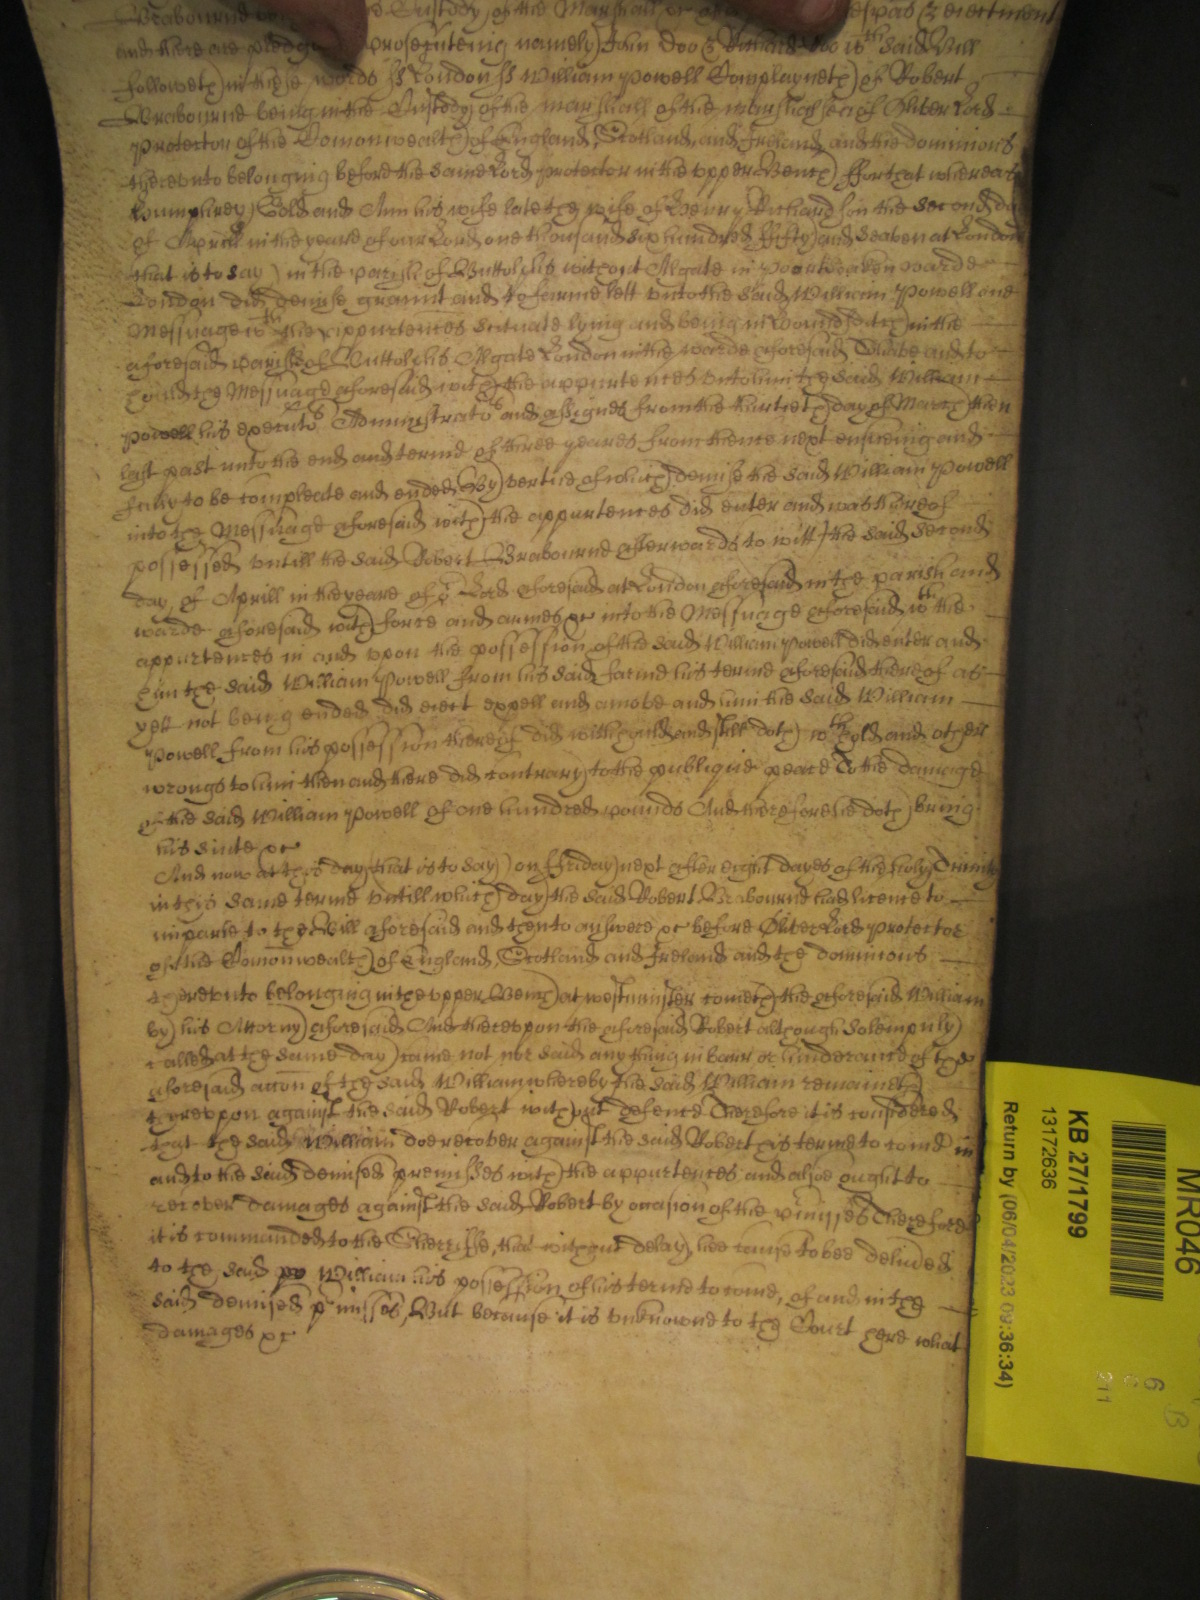 Brabourne Custody of the Marshall &c of trespas & eiectment
and there are pledges prosequuteing namely John Doo & Richard Roo wch said Bill
followeth in these words ss London ss William Powell Complayneth of Robert
Brabourne being in the Custody of the marshall of the marshalsea of Oliver Lord
Protector of the Comonwealth of England, Scotland, and Ireland and the dominions
thereunto belonging before the same Lord protector in the upper Bench ffor that whereas
Humphrey Gold and Ann his wife late the wife of Henry Richardson the second day
of Aprill in the yeare of our Lord one thousand six hundred ffifty and seaven at London
that is to say in the parish of Buttolphs without Algate in warde
London did demise graunt and to farme lett unto the said William Powell one
Messuage wth the appurtences scituate lying and being in Houndsditch in the
aforesaid parish of Buttolphs Algate London in the warde aforesaid To have and to
hould the Messuage aforesaid with the appurtences unto him the said William
Powell his executors Administrators and assignes from the thirtieth day of March then
last past unto the end and terme of three yeares from thence next ensueing and
fully to be compleate and ended By vertue of which demise the said William Powell
into the Messuage aforesaid with the appurtences did enter and was thereof
possessed untill the said Robert Brabourne afterwards to witt the said second
day of Aprill in the yeare of or Lord aforesaid at London aforesaid in the parish and
warde aforesaid with force and armes &c into the Messuage aforesaid wth the
appurtences in and upon the possession of the said William Powell did enter and
him the said William Powell from his said farme his terme aforesaid thereof as
yett not being ended did eiect expell and amove and him the said William
Powell from his possession thereof did withhould and still doth wthhold and other
wrongs to him then and there did contrary to the publique peace To the damage
of the said William Powell of one hundred pounds And therefore he doth bring
his suite &c
And now at this day that is to say on ffriday next after eight dayes of the holy Trinity
in this same terme untill which day the said Robert Brabourne had licence to
imparle to the Bill aforesaid and then to answere &c before Oliver Lord Protector
of the Comonwealth of England, Scotland and Ireland and the dominions
thereunto belonging in the upper Bench at westminster cometh the aforesaid William
by his Attorny aforesaid And thereupon the aforesaid Robert although solempnly
called at the same day came not nor said any thing in barr or hinderance of the
aforesaid accon of the said William whereby the said William remaineth
thereupon against the said Robert without defence Therefore it is considered
that the said William doe recover against the said Robert his terme to come in
and to the said demised premisses with the appurtences and alsoe ought to
recover damages against the said Robert by occasion of the premisses Therefore
it is commanded to the Sheriffe, that without delay hee cause to bee delivered
to the said William his possession of his terme to come, of and in the
said demised pmisses, But because it is unknowne to the Court here what
damages &c
MR046
KB 27/1799
13172636
Return by (06/04/2023 09:36:34)